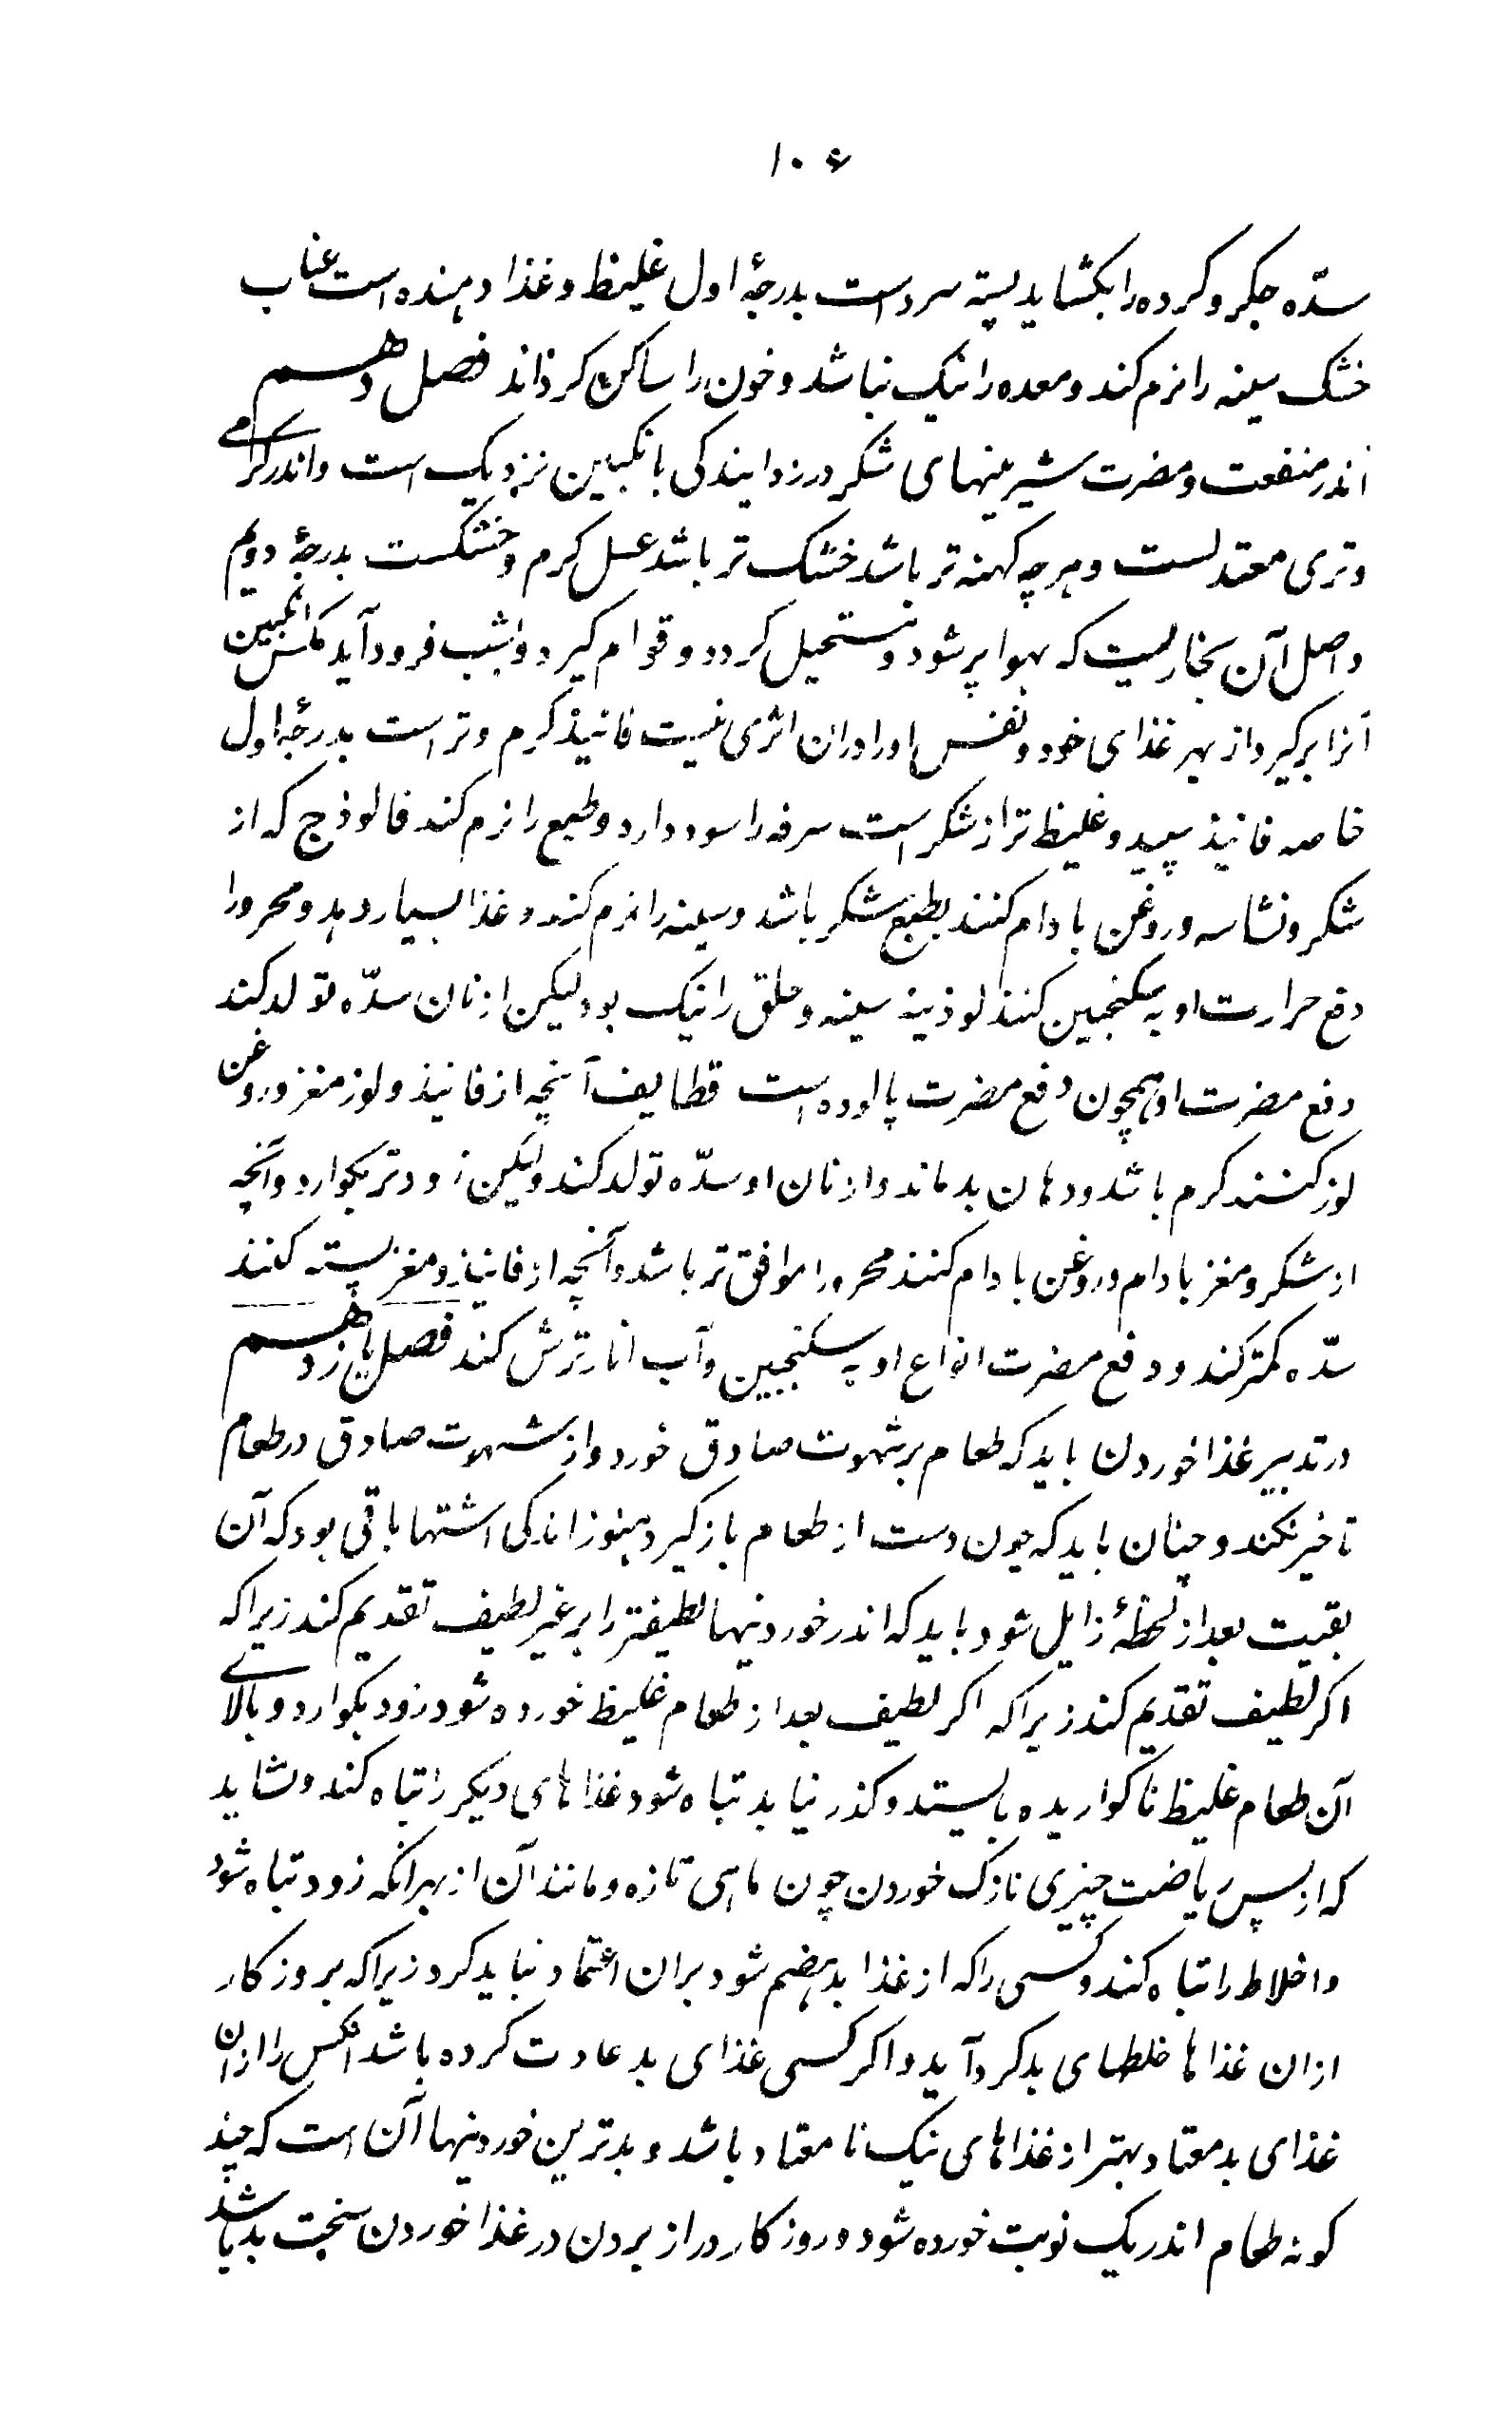 ۱۰۶
سدّه جکر و کرده را بکشاید پسته سردست بدرجهٔ اول غلیظ و غذا دهنده است عناب
خشک سینه را نرم کند و معده را نیک نباشد و خون را ساکن کرداند فصل دهم
اندر منفعت و مضرت شیرینیهای شکر در زدایندکی بانکبین نزدیک است و اندر کرمی
و تری معتدلست و هرچه کهنه تر باشد خشک تر باشد عسل کرم و خشکست بدرجهٔ دویم
و اصل آن بخاریست که بهوا بر شود و مستحیل کردد و قوام کیرد و بشب فرود آید مکس انکبین
آنرا برکیرد از بهر غذای خود و نفس او را دران اثری نیست فانیذ کرم و تر است بدرجهٔ اول
خاصه فانیذ سپید و غلیظ تر از شکر است سرفه را سود دارد و طبع را نرم کند فالوذج که از
شکر و نشاسه و روغن بادام کنند بطبع شکر باشد و سینه را نرم کند و غذا بسیار دهد و محرور را
دفع حرارت او به سکنجبین کنند لوذینه سینه و حلق را نیک بود لیکن از نان سدّه تولد کند
دفع مضرت او همچون دفع مضرت پالوده است قطایف آنچه از فانیذ و لوز مغز و روغن
لوز کنند کرم باشد و دهان بدماند و از نان او سدّه تولد کند ولیکن زودتر بکوارد و آنچه
از شکر و مغز بادام و روغن بادام کنند محرور را موافق تر باشد و آنچه از فانیذ و مغز پسته کنند
سدّه کمتر کند و دفع مضرت انواع او به سکنجبین و آب انار ترش کند فصل یازدهم
در تدبیر غذا خوردن باید که طعام بر شهوت صادق خورد و از شهوت صادق در طعام
تاخیر نکند و چنان باید که چون دست از طعام باز کیرد هنوز اندکی اشتها باقی بود که آن
بقیت بعد از لحظهٔ زایل شود باید که اندر خوردنیها لطیفتر را بر غیر لطیف تقدیم کند زیرا که
اکر لطیف تقدیم کند زیرا که اکر لطیف بعد از طعام غلیظ خورده شود زود بکوارد و بالای
آن طعام غلیظ ناکواریده بایستد و کذر نیابد تباه شود غذاهای دیکر را تباه کند و نشاید
که از پس ریاضت چیزی نازک خوردن چون ماهی تازه و مانند آن از بهر انکه زود تباه شود
و اخلاط را تباه کند و کسی را که از غذا بد هضم شود بران اعتماد نباید کرد زیرا که بروزکار
ازان غذاها خلطهای بد کرد آید و اکر کسی غذای بد عادت کرده باشد انکس را ازان
غذای بد معتاد بهتر از غذاهای نیک نا معتاد باشد و بدترین خوردنیها آن است که چند
کونه طعام اندر یک نوبت خورده شود و روزکار دراز بردن در غذا خوردن سخت بد باشد